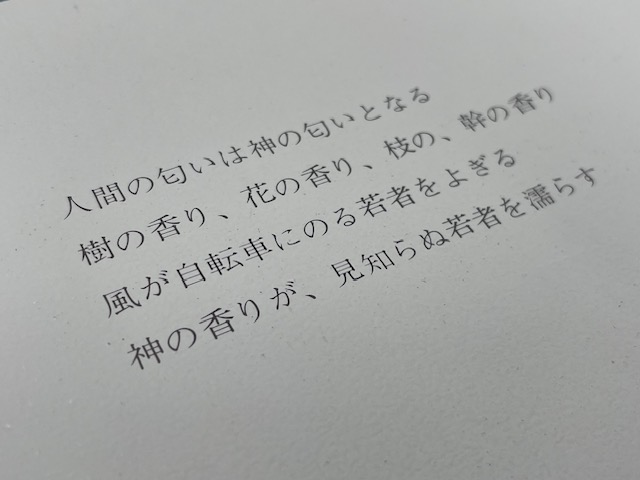 人間の匂いは神の匂いとなる
樹の香り、花の香り、枝の、幹の香り
風が自転車にのる若者をよぎる
神の香りが、見知らぬ若者を濡らす